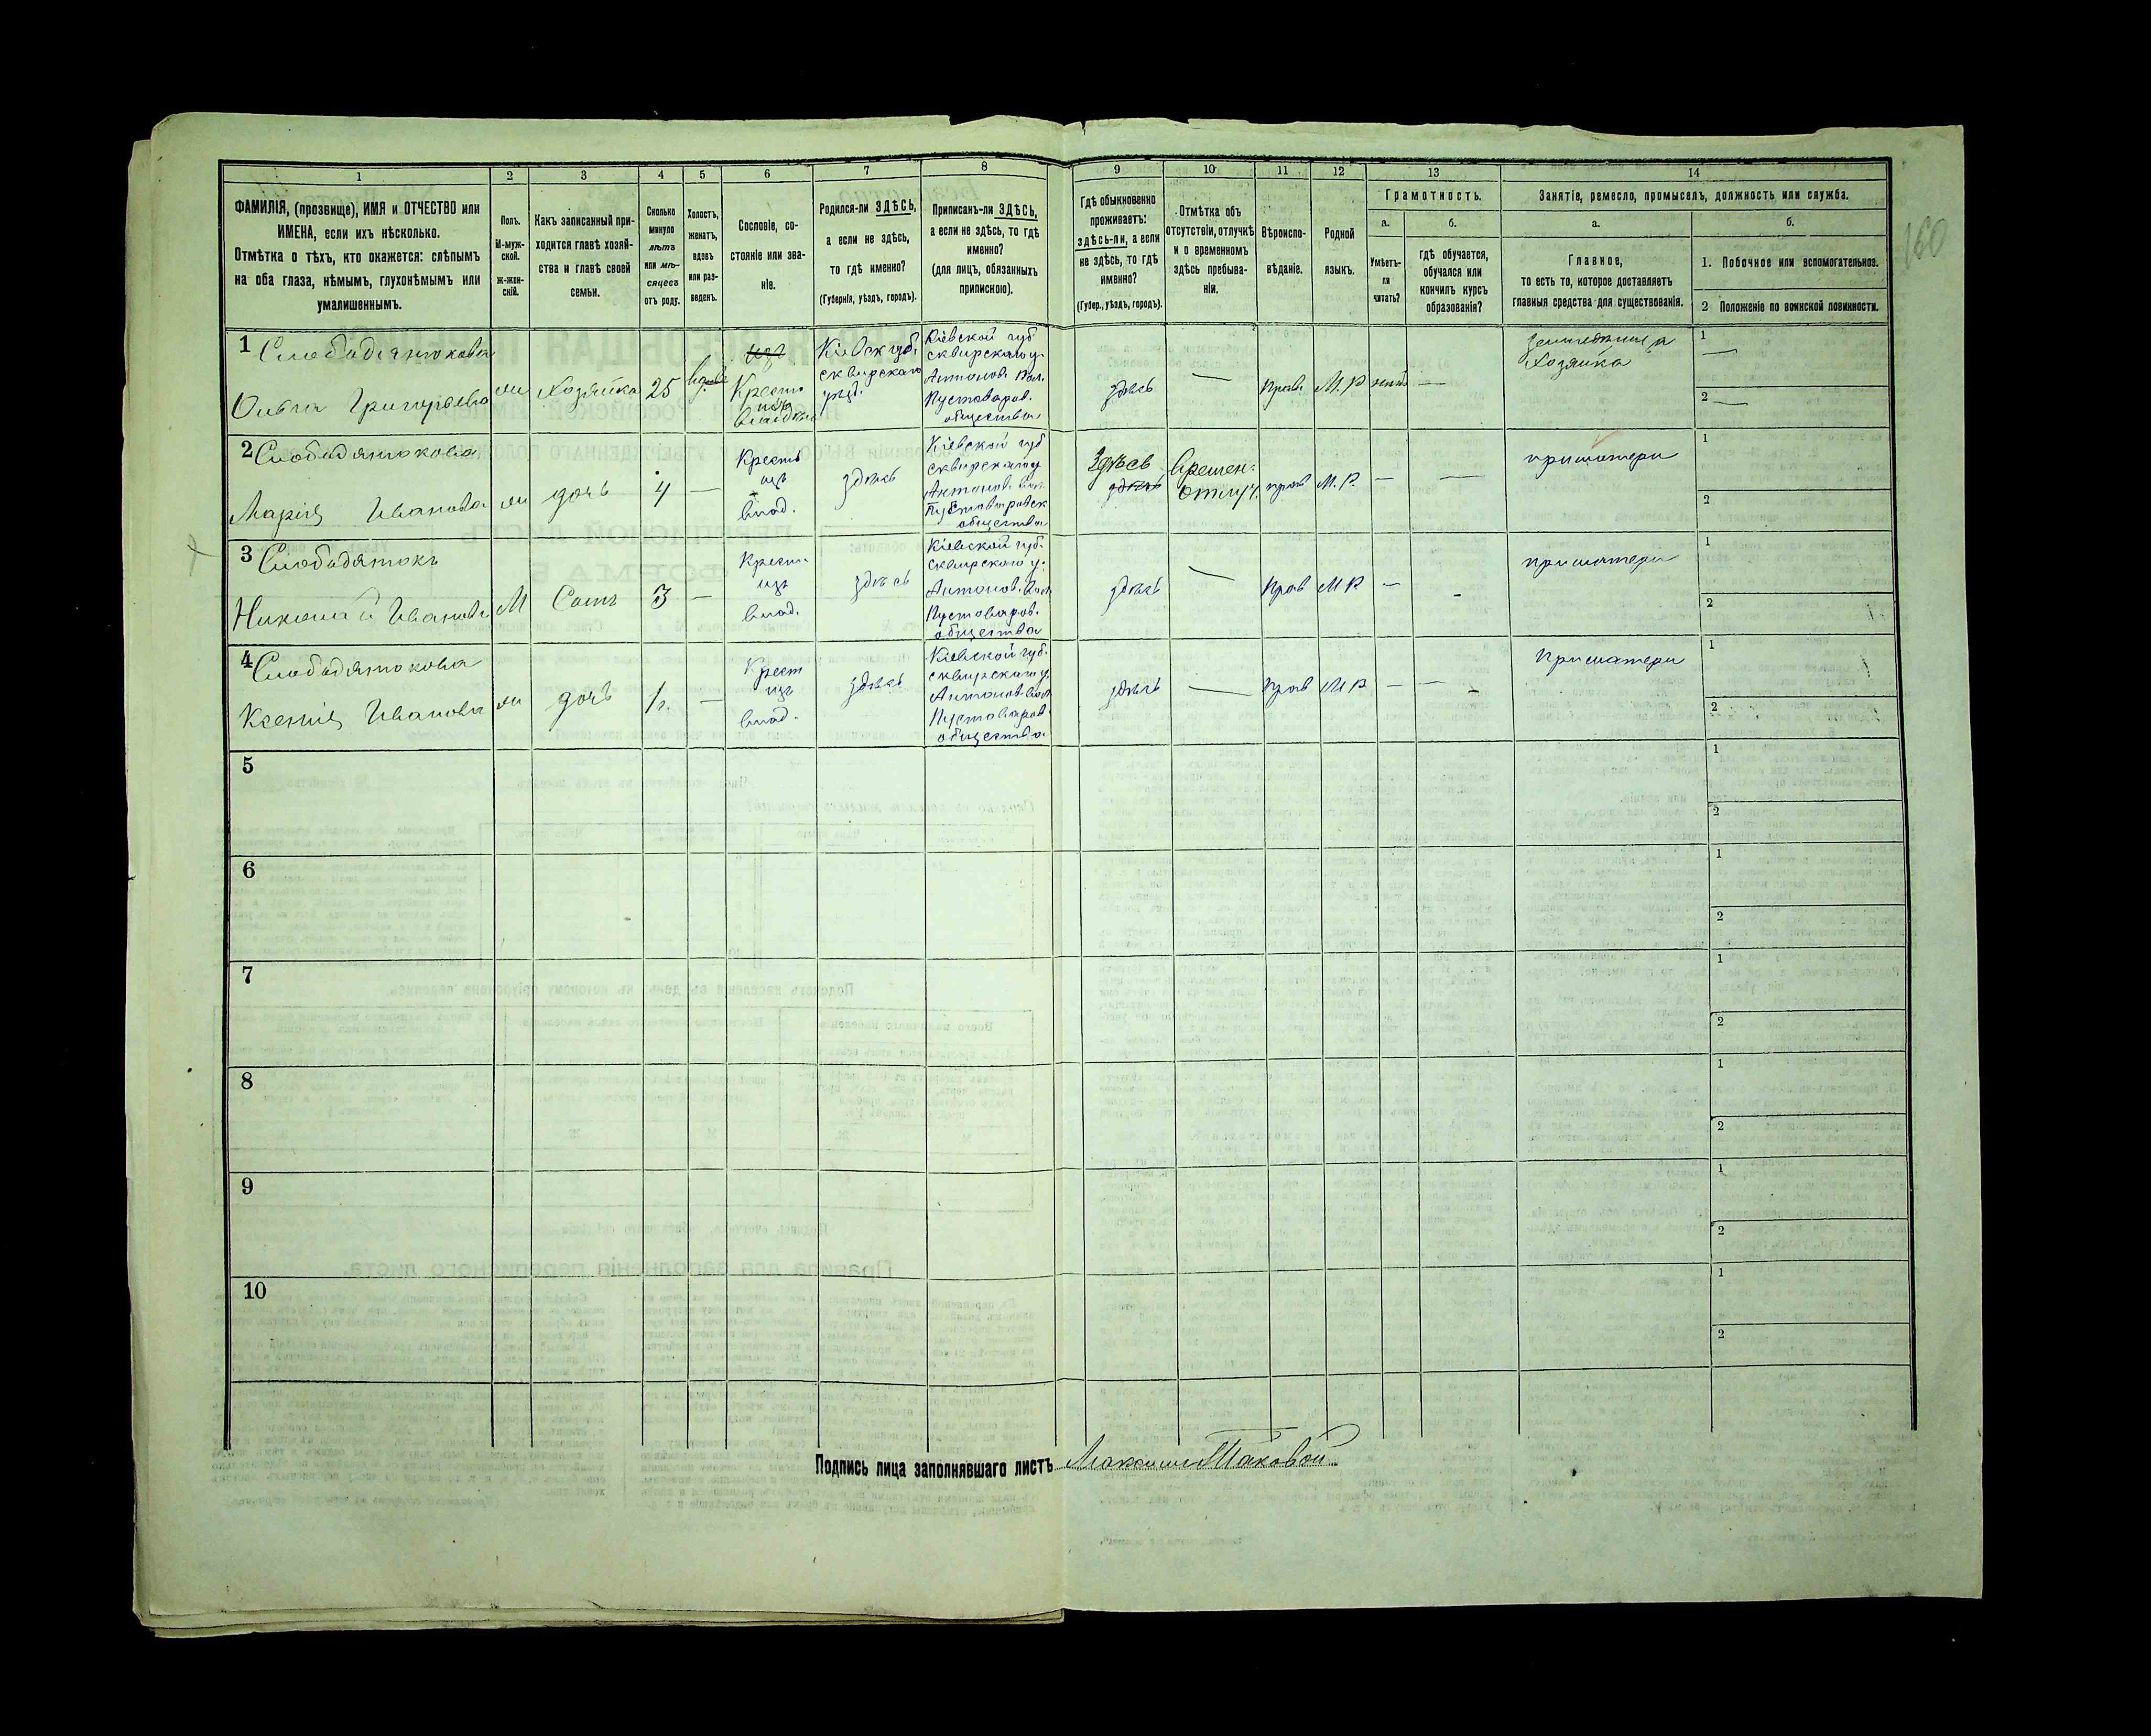 1 2 3 4 5 6 7 8 9 10 11 12 13 14
ФАМИЛІЯ, (прозвище), ИМЯ и ОТЧЕСТВО или
ИМЕНА, если ихъ нѣсколько.
Отмѣтка о тѣхъ, кто окажется: слѣпымъ
на оба глаза, нѣмымъ, глухонѣмымъ или
умалишеннымъ.
Полъ.
М-муж-
ской.
ж-жен-
скій.
Какъ записанный при-
ходится главѣ хозяй-
ства и главѣ своей
семьи.
Сколько
минуло
лѣтъ
или мѣ-
сяцевъ
отъ роду.
Холостъ,
женатъ,
вдовъ
или раз-
веденъ.
Сословіе, со-
стояніе или зва-
ніе.
Родился-ли ЗДѢСЬ,
а если не здѣсь,
то гдѣ именно?
(Губернія, уѣздъ, городъ).
Приписанъ-ли ЗДѢСЬ,
а если не здѣсь, то гдѣ
именно?
(для лицъ, обязанныхъ
припискою).
Гдѣ обыкновенно
проживаетъ:
здѣсь-ли, а если
не здѣсь, то гдѣ
именно?
(Губер., уѣздъ, городъ).
Отмѣтка объ
отсутствіи, отлучкѣ
и о временномъ
здѣсь пребыва-
ніи.
Вѣроиспо-
вѣданіе.
Родной
языкъ.
Грамотность.
а.
Умѣетъ-
ли
читать?
б.
гдѣ обучается,
обучался или
кончилъ курсъ
образованія?
Занятіе, ремесло, промыселъ, должность или служба.
а.
Главное,
то есть то, которое доставляетъ
главныя средства для существованія.
б.
1. Побочное или вспомогательное.
2 Положеніе по воинской повинности.
160
1 Слободянюкова
Ольга Григорьева
ж
Хозяйка
25
вдова
Крест.
изъ
владѣл.
Кіевск губ.
сквирскаго
уѣзд.
Кіевской губ
сквирскаго у.
Антонов. Вол.
Пустоваров.
общества
здѣсь
—
Прав.
М.Р.
нѣтъ
—
Хозяйка
1 —
2 —
2 Слободянюкова
Марія Иванова
ж
дочь
4
—
Крест
изъ
влад.
здѣсь
Кіевской губ
сквирскаго у
Антонов. Вол.
Пустоваровск
общества
здѣсь
Времен.
отлуч.
прав
М.Р.
—
—
при матери
1
2
3 Слободянюкъ
Николай Иванов
М
Сынъ
3
—
Крест.
изъ
влад.
здѣсь
Кіевской губ.
сквирскаго у.
Антонов. Вол
Пустоваров.
общества
здѣсь
—
Прав
М Р.
—
-
при матери
1
2
4 Слободянюкова
Ксенія Иванова
ж
дочь
1 г.
—
Крест
изъ
влад.
здѣсь
Кіевской губ.
сквирскаго у.
Антонов. Вол
Пустоваров.
общества
здѣсь
—
Прав
М Р.
—
—
При матери
1
2
5
1
2
6
1
2
7
1
2
8
1
2
9
1
2
10
1
2
Подпись лица заполнявшаго листъ Максим